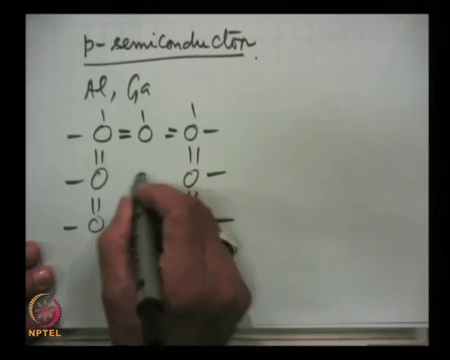 p-semiconductor.
Al, Ga
NPTEL